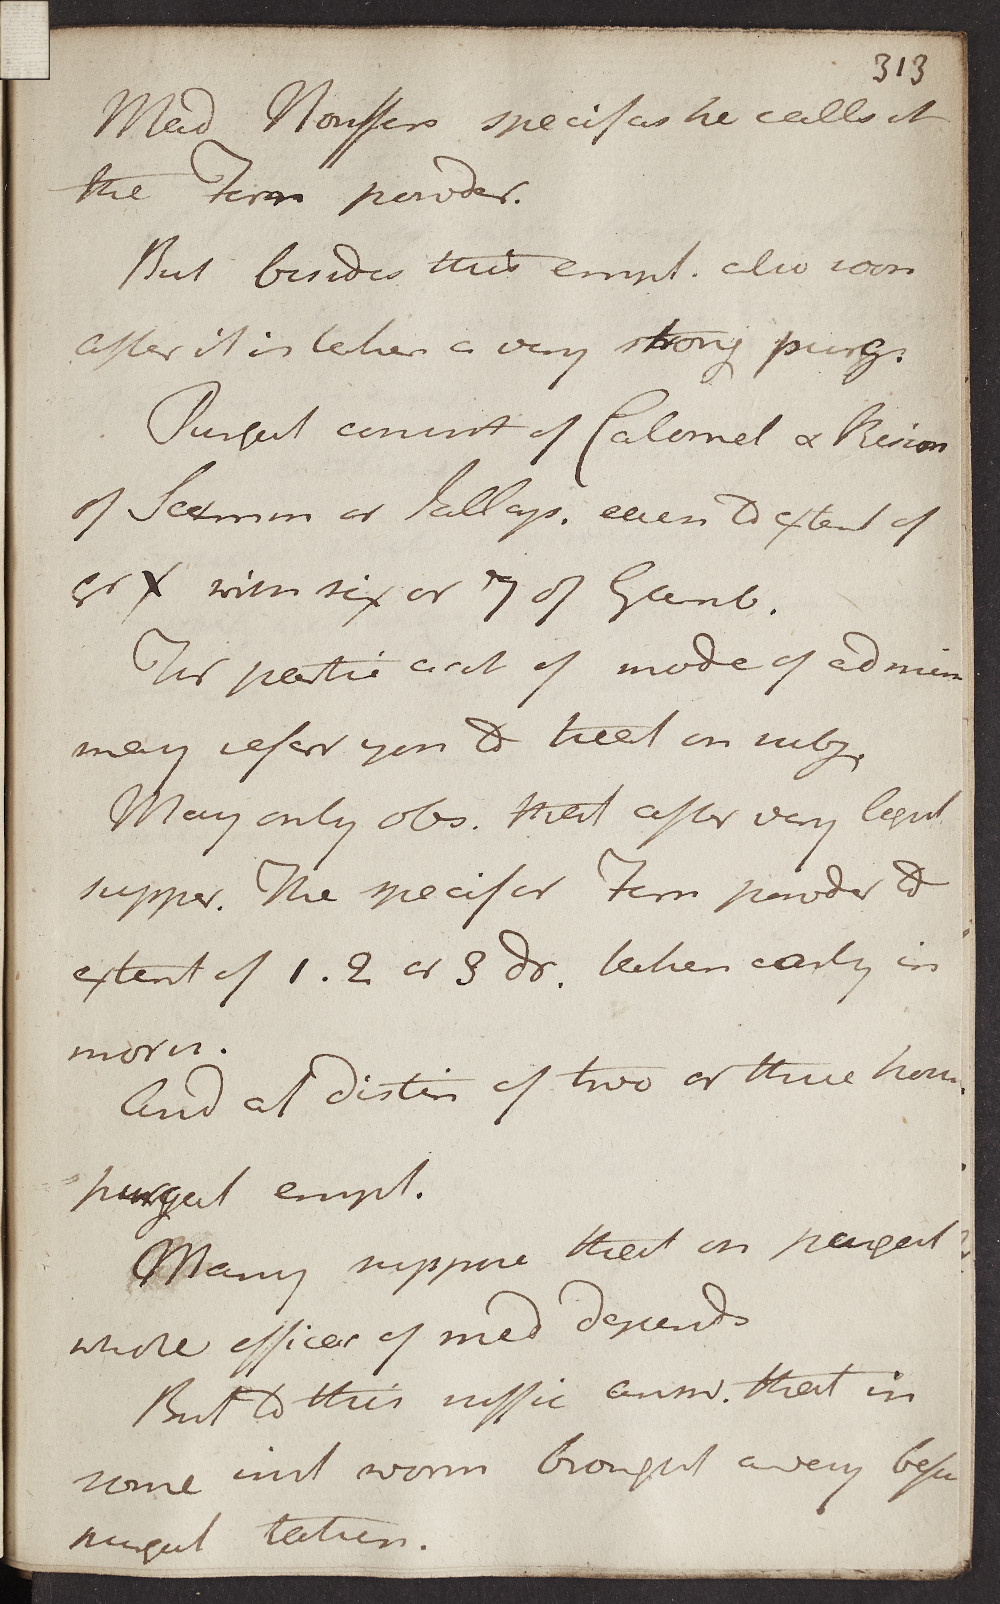 313
Mad Nouffers specif as he calls it
the Fern powder.
But besides this empl. also soon
after it is taken a very strong purg.
Purgat consist of Calomel & Resion
of Scammn or Jallap. even to extent of
gr X with six or 7 of Gamb.
For partic acct of mode of admin
may refer you to treat on subj.
May only obs. that after very light
supper. The specif or Fern powder to
extent of 1. 2 or 3 dr. taken early in
morn.
And at distin of two or three hour.
purgat empl.
Many suppose that on purgat
whole efficac of med depends
But to this suffic answ. that in
some inst worm brought away befor
purgat taken.